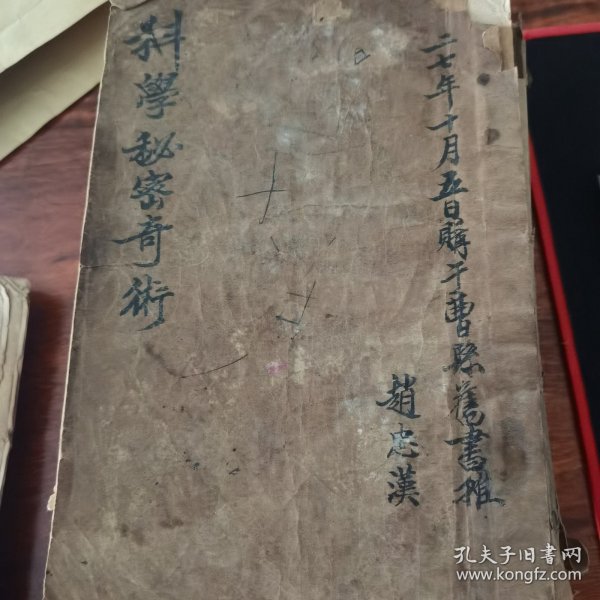 科學秘密奇術
二七年十月五日購于曹縣舊書摊
趙忠漢
孔夫子旧書网
www.kongfz.com